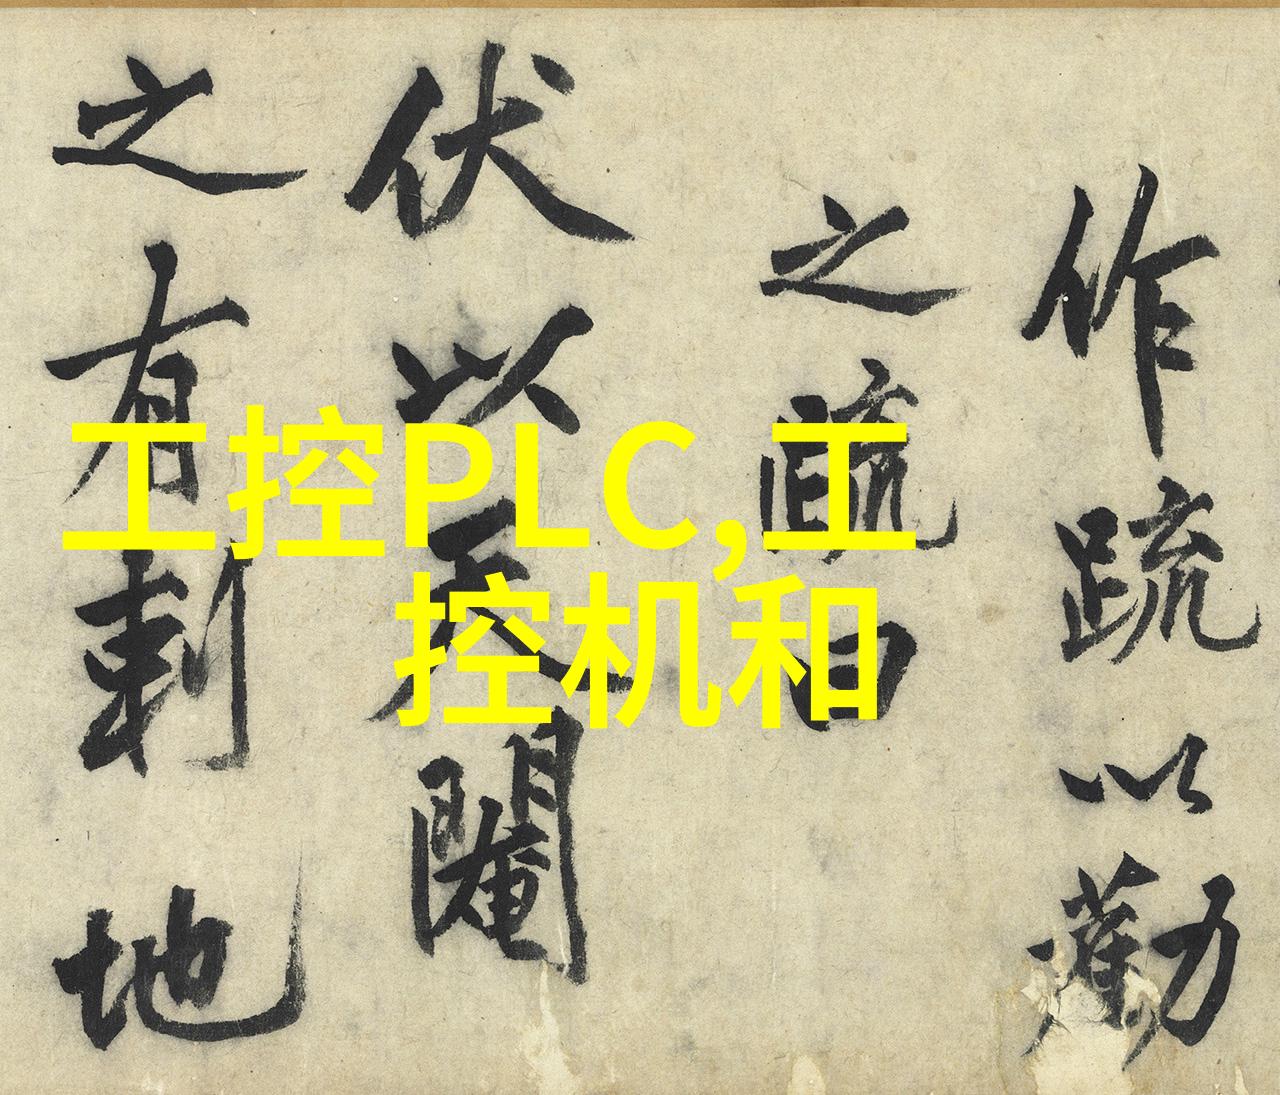 作疏以勸
之疏曰
伏以天閹
之有刺地
工控PLC,工
控机和